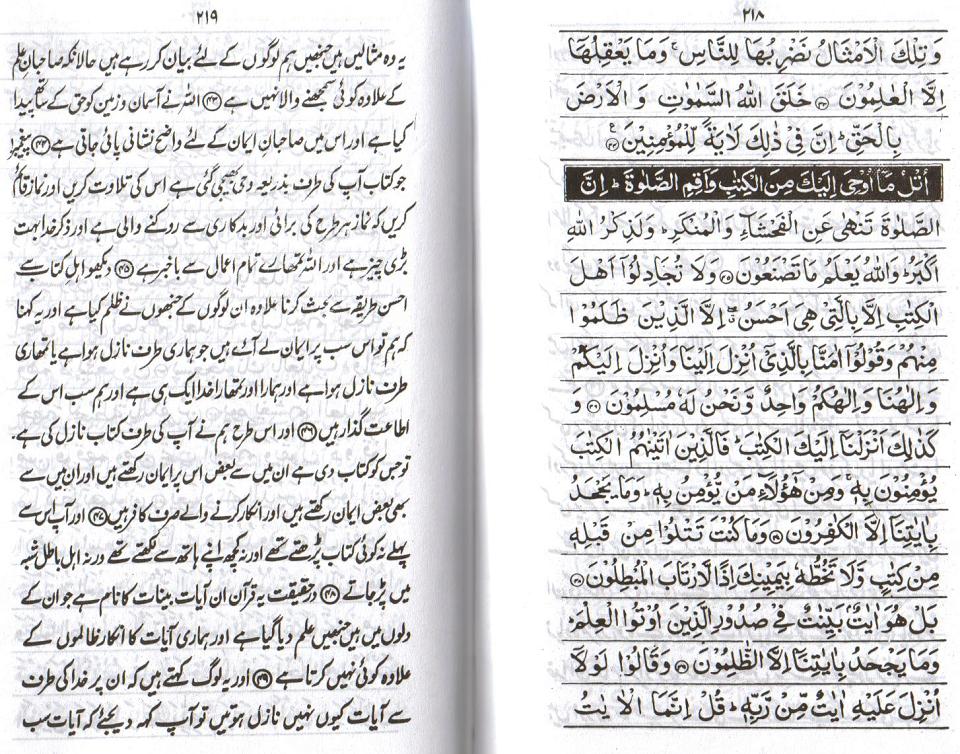 ۲۱۸
وَتِلْكَ الْاَمْثَالُ نَضْرِبُهَا لِلنَّاسِ ۚ وَمَا يَعْقِلُهَا
اِلَّا الْعٰلِمُوْنَ ﴿۴۳﴾ خَلَقَ اللّٰهُ السَّمٰوٰتِ وَ الْاَرْضَ
بِالْحَقِّ ؕ اِنَّ فِیْ ذٰلِكَ لَاٰیَةً لِّلْمُؤْمِنِیْنَ ﴿۴۴﴾
اُتْلُ مَاۤ اُوْحِیَ اِلَیْكَ مِنَ الْكِتٰبِ وَاَقِمِ الصَّلٰوةَ ؕ اِنَّ
الصَّلٰوةَ تَنْهٰی عَنِ الْفَحْشَآءِ وَالْمُنْكَرِ ؕ وَلَذِكْرُ اللّٰهِ
اَكْبَرُ ؕ وَاللّٰهُ یَعْلَمُ مَا تَصْنَعُوْنَ ﴿۴۵﴾ وَلَا تُجَادِلُوْۤا اَهْلَ
الْكِتٰبِ اِلَّا بِالَّتِیْ هِیَ اَحْسَنُ ۖ اِلَّا الَّذِیْنَ ظَلَمُوْا
مِنْهُمْ وَقُوْلُوْۤا اٰمَنَّا بِالَّذِیْۤ اُنْزِلَ اِلَیْنَا وَاُنْزِلَ اِلَیْكُمْ
وَاِلٰهُنَا وَاِلٰهُكُمْ وَاحِدٌ وَّنَحْنُ لَهٗ مُسْلِمُوْنَ ﴿۴۶﴾ وَ
كَذٰلِكَ اَنْزَلْنَاۤ اِلَیْكَ الْكِتٰبَ ؕ فَالَّذِیْنَ اٰتَیْنٰهُمُ الْكِتٰبَ
یُؤْمِنُوْنَ بِهٖ ۚ وَمِنْ هٰۤؤُلَآءِ مَنْ یُّؤْمِنُ بِهٖ ؕ وَمَا یَجْحَدُ
بِاٰیٰتِنَاۤ اِلَّا الْكٰفِرُوْنَ ﴿۴۷﴾ وَمَا كُنْتَ تَتْلُوْا مِنْ قَبْلِهٖ
مِنْ كِتٰبٍ وَّلَا تَخُطُّهٗ بِیَمِیْنِكَ اِذًا لَّارْتَابَ الْمُبْطِلُوْنَ ﴿۴۸﴾
بَلْ هُوَ اٰیٰتٌۢ بَیِّنٰتٌ فِیْ صُدُوْرِ الَّذِیْنَ اُوْتُوا الْعِلْمَ ؕ
وَمَا یَجْحَدُ بِاٰیٰتِنَاۤ اِلَّا الظّٰلِمُوْنَ ﴿۴۹﴾ وَقَالُوْا لَوْلَاۤ
اُنْزِلَ عَلَیْهِ اٰیٰتٌ مِّنْ رَّبِّهٖ ؕ قُلْ اِنَّمَا الْاٰیٰتُ
۲۱۹
یہ وہ مثالیں ہیں جنھیں ہم لوگوں کے لئے بیان کر رہے ہیں حالانکہ صاحبانِ علم
کے علاوہ کوئی سمجھنے والا نہیں ہے ﴿۴۳﴾ اللہ نے آسمان و زمین کو حق کے ساتھ پیدا
کیا ہے اور اس میں صاحبانِ ایمان کے لئے واضح نشانی پائی جاتی ہے ﴿۴۴﴾ پیغمبر
جو کتاب آپ کی طرف بذریعہ وحی بھیجی گئی ہے اس کی تلاوت کریں اور نماز قائم
کریں کہ نماز ہر طرح کی برائی اور بدکاری سے روکنے والی ہے اور ذکرِ خدا بہت
بڑی چیز ہے اور اللہ تمھارے تمام اعمال سے باخبر ہے ﴿۴۵﴾ دیکھو اہلِ کتاب سے
احسن طریقہ سے بحث کرنا علاوہ ان لوگوں کے جنھوں نے ظلم کیا ہے اور یہ کہنا
کہ ہم تو اس سب پر ایمان لے آئے ہیں جو ہماری طرف نازل ہوا ہے یا تمھاری
طرف نازل ہوا ہے اور ہمارا اور تمھارا خدا ایک ہی ہے اور ہم سب اس کے
اطاعت گذار ہیں ﴿۴۶﴾ اور اس طرح ہم نے آپ کی طرف کتاب نازل کی ہے.
تو جس کو کتاب دی ہے ان میں سے بعض اس پر ایمان رکھتے ہیں اور ان میں سے
بھی بعض ایمان رکھتے ہیں اور انکار کرنے والے صرف کافر ہیں ﴿۴۷﴾ اور آپ اس سے
پہلے نہ کوئی کتاب پڑھتے تھے اور نہ کچھ اپنے ہاتھ سے لکھتے تھے ورنہ اہلِ باطل شبہ
میں پڑ جاتے ﴿۴۸﴾ درحقیقت یہ قرآن ان آیات بینات کا نام ہے جو ان کے
دلوں میں ہیں جنھیں علم دیا گیا ہے اور ہماری آیات کا انکار ظالموں کے
علاوہ کوئی نہیں کرتا ہے ﴿۴۹﴾ اور یہ لوگ کہتے ہیں کہ ان پر خدا کی طرف
سے آیات کیوں نہیں نازل ہوتیں تو آپ کہہ دیجئے کہ آیات سب